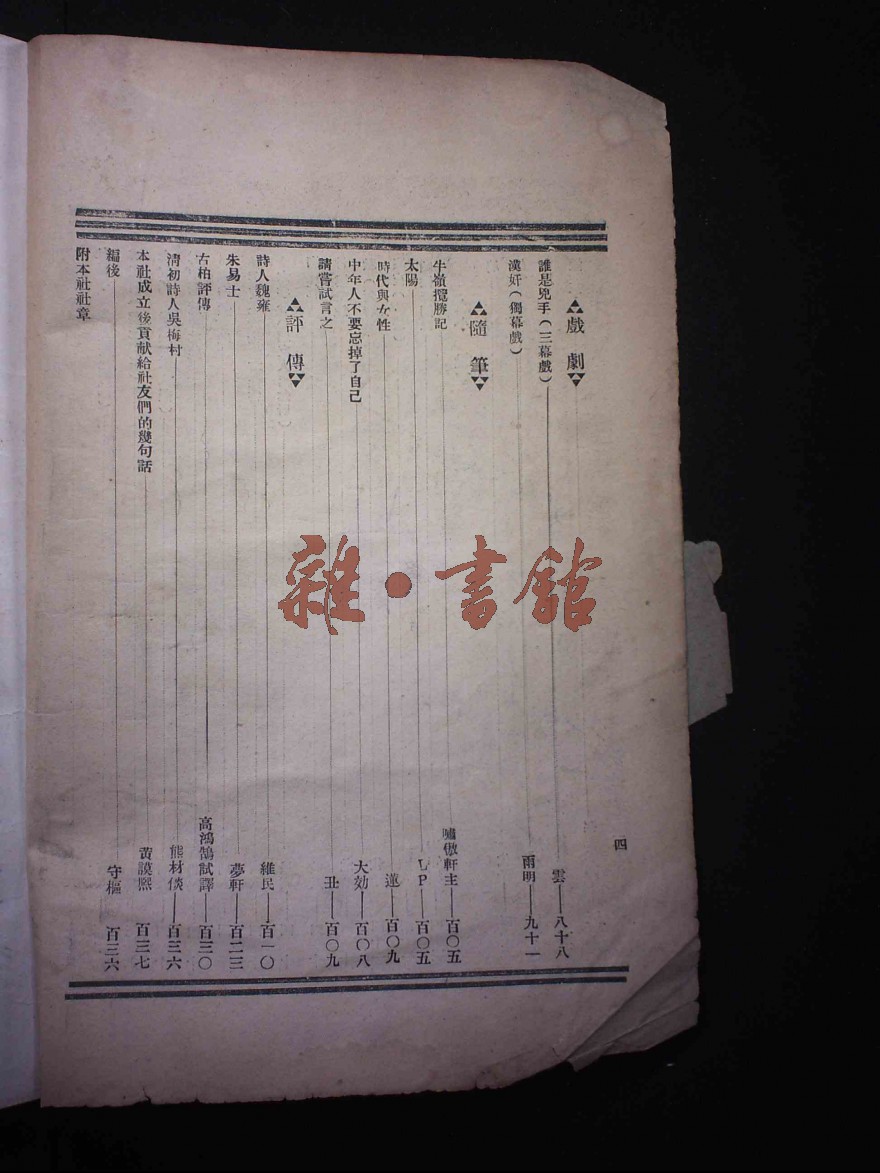 ▲戲劇▼
誰是兇手（三幕戲）——雲——八十八
漢奸（獨幕戲）——雨明——九十一
▲隨筆▼
牛嶺攬勝記——嘯傲軒主——百〇五
太陽——L P——百〇五
時代與女性——蓮——百〇九
中年人不要忘掉了自己——大効——百〇八
請嘗試言之——丑——百〇九
▲評傳▼
詩人魏雍——維民——百一〇
朱易士——夢軒——百二三
古柏評傳——高鴻鵠試譯——百三〇
清初詩人吳梅村——熊材倓——百三六
本社成立後貢献給社友們的幾句話——黃謨熙 百三七
編後——守樞 百三六
附本社社章
四
雜·書館